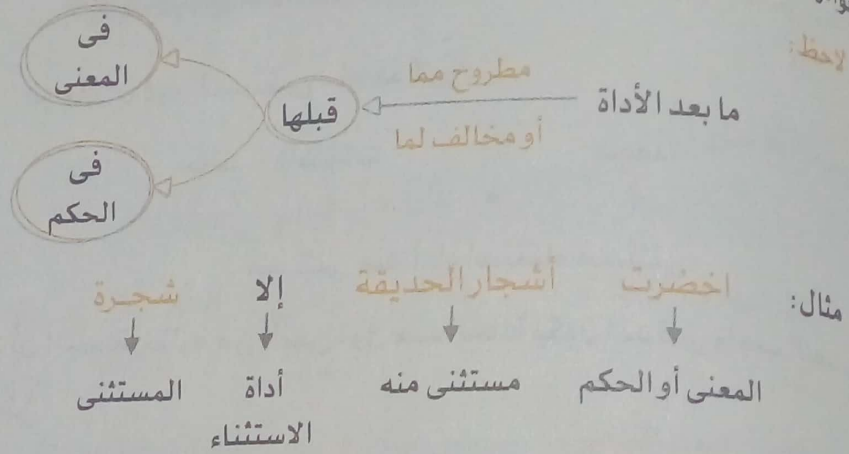 لاحظ:
ما بعد الأداة
مطروح مما
أو مخالف لما
قبلها
فى
المعنى
فى
الحكم
مثال:
اخضرت أشجار الحديقة إلا شجرة
المعنى أو الحكم مستثنى منه أداة المستثنى
الاستثناء